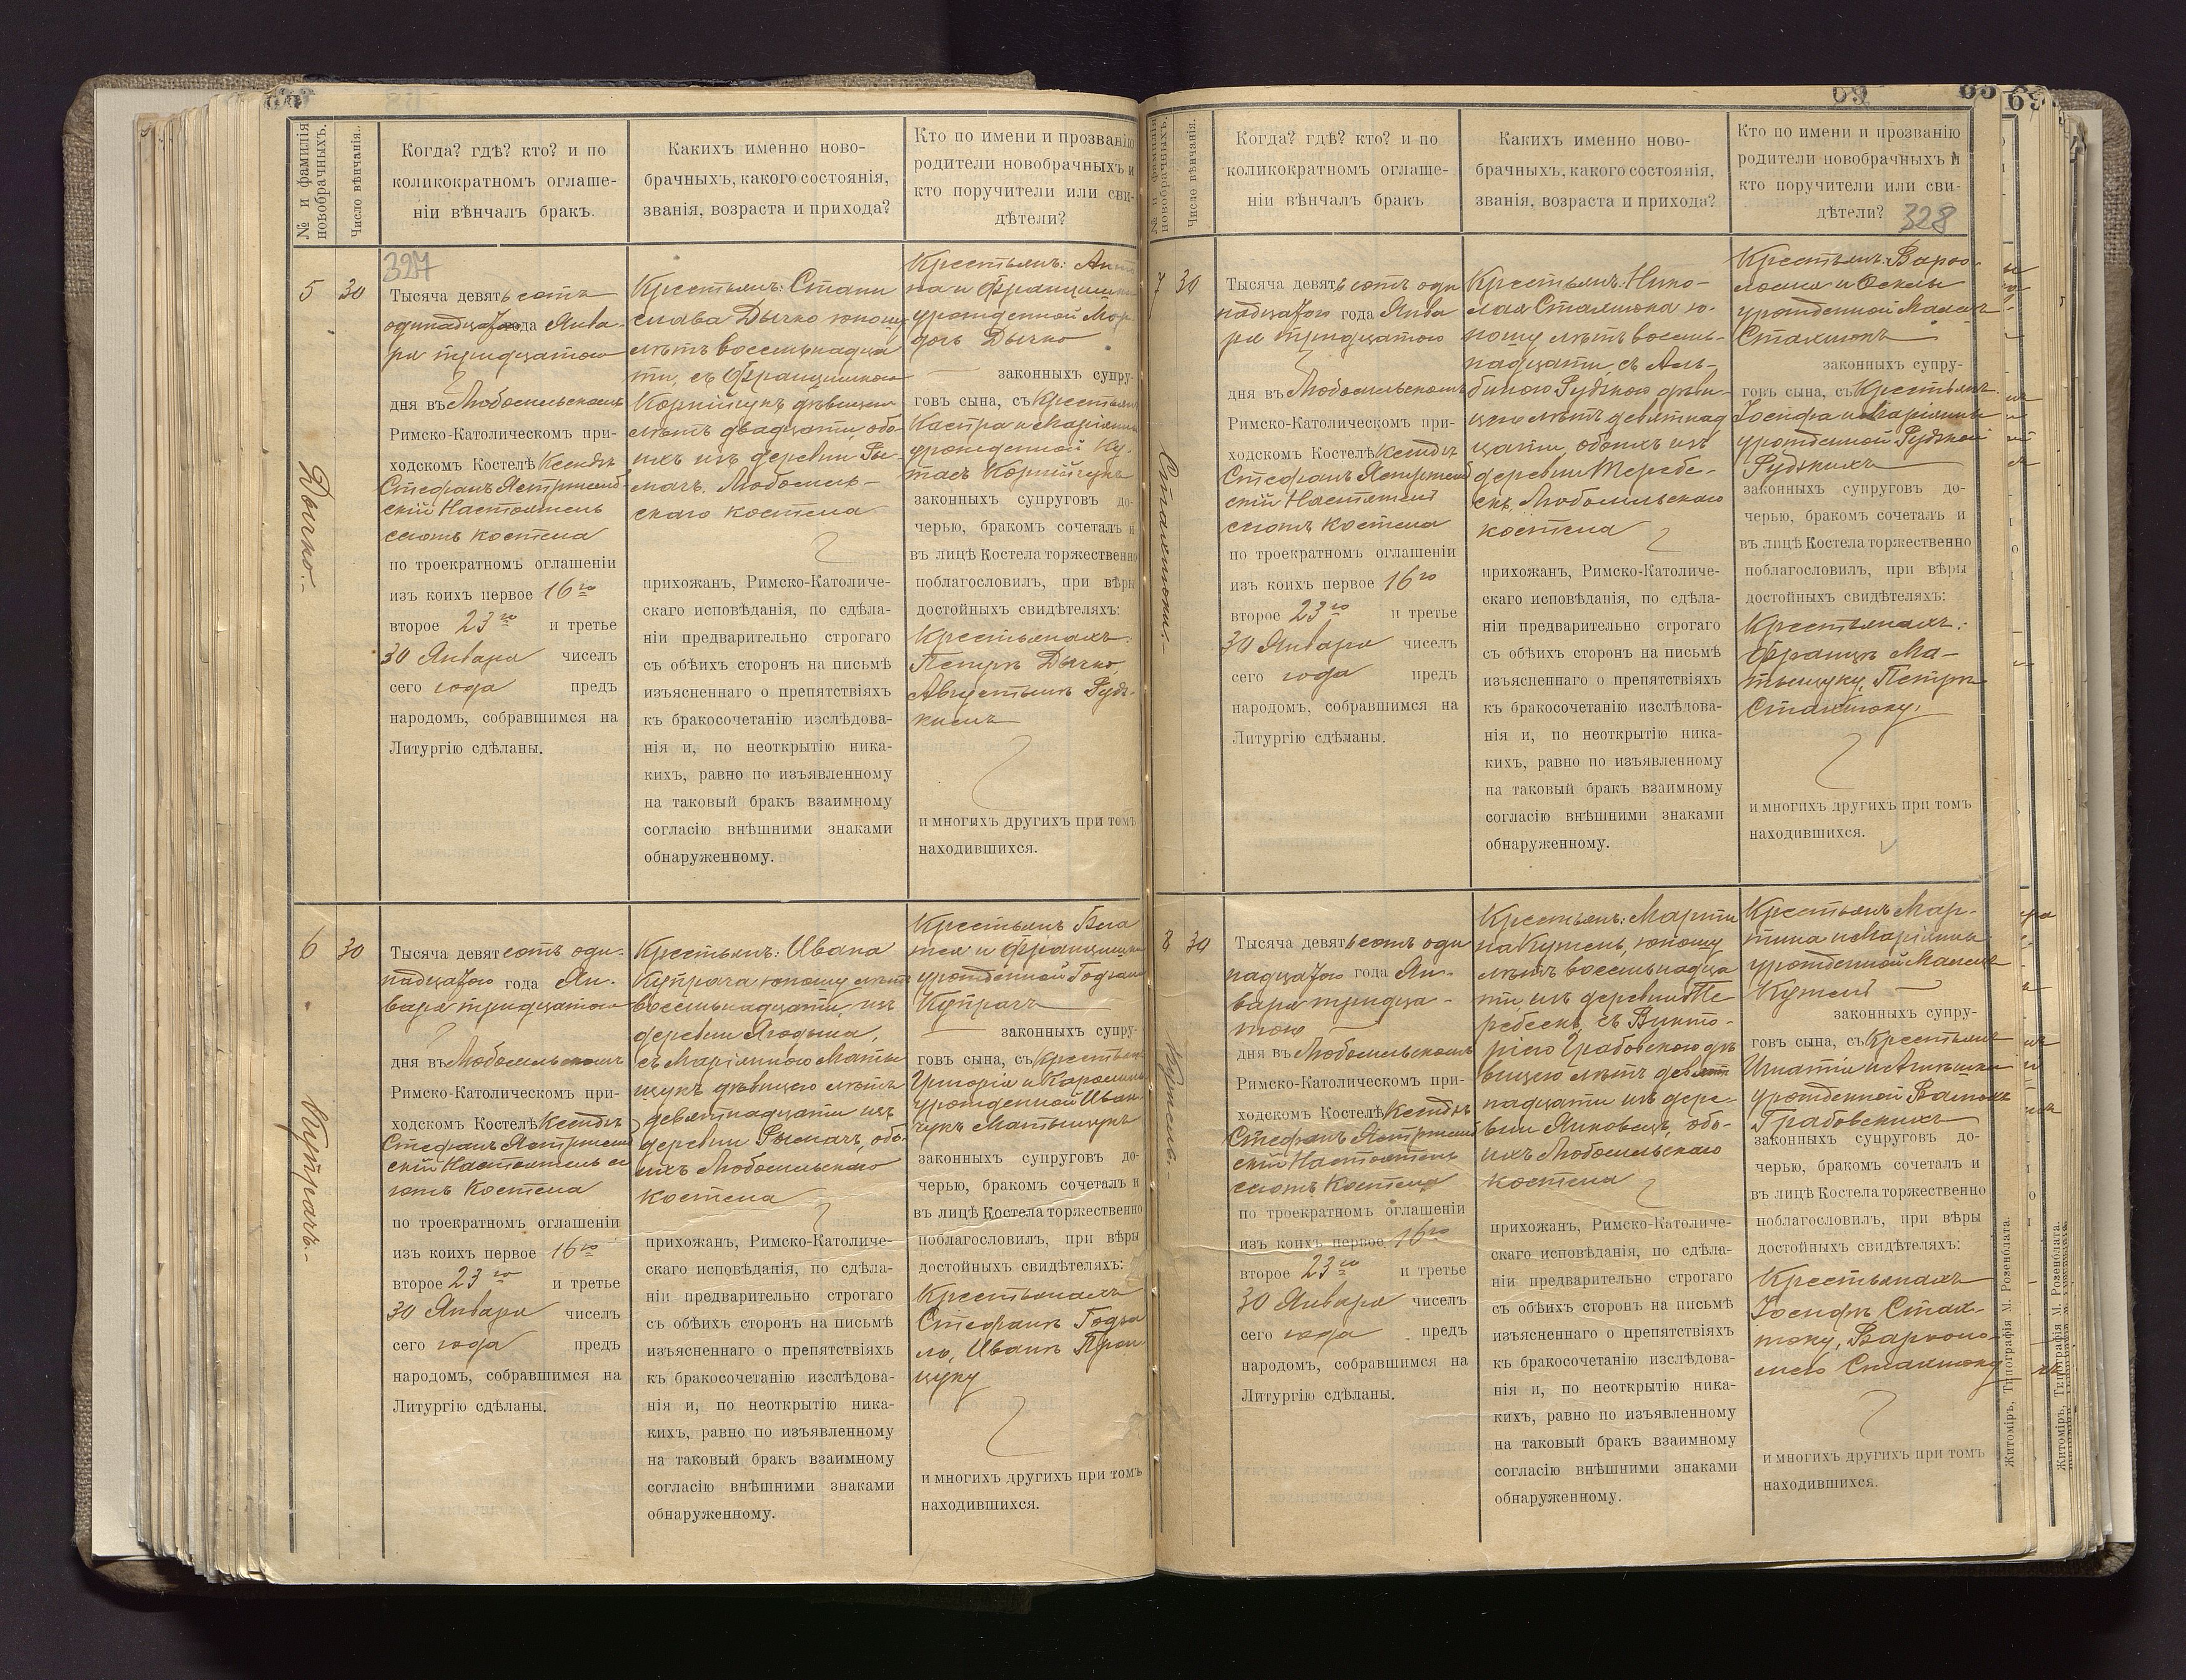 № и фамилія новобрачныхъ.
Число вѣнчанія.
Когда? гдѣ? кто? и по
коликократномъ оглаше-
ніи вѣнчалъ бракъ.
Какихъ именно ново-
брачныхъ, какого состоянія,
званія, возраста и прихода?
Кто по имени и прозванію
родители новобрачныхъ и
кто поручители или сви-
дѣтели?
5
30
Дычко.
327
Тысяча девятьсотъ
одинадцатого года Янва-
ря тридцатого
дня въ Любомльскомъ
Римско-Католическомъ при-
ходскомъ Костелѣ Ксендзъ
Стефанъ Ястржемб-
скій Настоятель
сего костела
по троекратномъ оглашеніи
изъ коихъ первое 16го
второе 23го и третье
30 Января чиселъ
сего года предъ
народомъ, собравшимся на
Литургію сдѣланы.
Крестьянъ: Стани
слава Дычко юношу
лѣтъ восемьнадца
ти, съ Францишкою
Корнійчукъ дѣвицею
лѣтъ двадцати, обо-
ихъ изъ деревни Ры-
мачъ, Любомль-
скаго костела
прихожан, Римско-Католиче-
скаго исповѣданія, по сдѣла-
ніи предварительно строгаго
съ обѣихъ сторонъ на письмѣ
изъясненнаго о препятствіяхъ
къ бракосочетанію изслѣдова-
нія и, по неоткрытію ника-
кихъ, равно по изъявленному
на таковый бракъ взаимному
согласію внѣшними знаками
обнаруженному.
Крестьянъ: Анто
на и Францишки
урожденной
Дычко
законныхъ супру-
говъ сына, съ Крестьянъ
и Маріанны
урожденной Ку-
тасъ Корнійчукъ
законныхъ супруговъ до-
черью, бракомъ сочеталъ и
въ лицѣ Костела торжественно
поблагословилъ, при вѣры
достойныхъ свидѣтеляхъ:
Крестьянахъ:
Петръ Дычко,
Августынъ Рудз-
кимъ
и многихъ другихъ при томъ
находившихся.
6
30
Купрачъ.
Тысяча девятсотъ оди-
надцатого года Ян-
варя тридцатого
дня въ Любомльскомъ
Римско-Католическомъ при-
ходскомъ Костелѣ Ксендзъ
Стефанъ Ястржемб
скій Настоятель се
го костела
по троекратномъ оглашеніи
изъ коихъ первое 16го
второе 23го и третье
30 Января чиселъ
сего года предъ
народомъ, собравшимся на
Литургію сдѣланы.
Крестьянъ: Ивана
Купрача юношу лѣтъ
восемьнадцати, изъ
деревни Ягодына,
съ Маріанною Маты
щукъ дѣвицею лѣтъ
девятнадцати изъ
деревни Рымачъ, обо-
ихъ Любомльскаго
костела
прихожан, Римско-Католиче-
скаго исповѣданія, по сдѣла-
ніи предварительно строгаго
съ обѣихъ сторонъ на письмѣ
изъясненнаго о препятствіяхъ
къ бракосочетанію изслѣдова-
нія и, по неоткрытію ника-
кихъ, равно по изъявленному
на таковый бракъ взаимному
согласію внѣшними знаками
обнаруженному.
Крестьянъ
и Францишки
урожденной
Купрачъ
законныхъ супру-
говъ сына, съ крестьянъ
Григорія и Каролины
урожденной Иван-
чукъ Матыщукъ
законныхъ супруговъ до-
черью, бракомъ сочеталъ и
въ лицѣ Костела торжественно
поблагословилъ, при вѣры
достойныхъ свидѣтеляхъ:
Крестьянахъ
Стефанъ
Иванъ
и многихъ другихъ при томъ
находившихся.
69
69
№ и фамилія новобрачныхъ.
Число вѣнчанія.
Когда? гдѣ? кто? и по
коликократномъ оглаше-
ніи вѣнчалъ бракъ
Какихъ именно ново-
брачныхъ, какого состоянія,
званія, возраста и прихода?
Кто по имени и прозванію
родители новобрачныхъ и
кто поручители или сви-
дѣтели? 328
7
30
Тысяча девятьсотъ оди
надцатого года Янва
ря тридцатого
дня въ Любомльскомъ
Римско-Католическомъ при-
ходскомъ Костелѣ Ксендзъ
Стефанъ Ястржемб
скій Настоятель
сего костела
по троекратномъ оглашеніи
изъ коихъ первое 16го
второе 23го и третье
30 Января чиселъ
сего года предъ
народомъ, собравшимся на
Литургію сдѣланы.
Крестьянъ: Нико-
лая Стахнюка ю-
ношу лѣтъ восемь-
надцати, съ Аль-
биною Рудзкою дѣви-
цею лѣтъ девятнад
цати, обоихъ изъ
деревни Теребе-
скъ, Любомльскаго
костела
прихожан, Римско-Католиче-
скаго исповѣданія, по сдѣла-
ніи предварительно строгаго
съ обѣихъ сторонъ на письмѣ
изъясненнаго о препятствіяхъ
къ бракосочетанію изслѣдова-
нія и, по неоткрытію ника-
кихъ, равно по изъявленному
на таковый бракъ взаимному
согласію внѣшними знаками
обнаруженному.
Крестьянъ: Варѳо-
ломея и
урожденной
Стахнюкъ
законныхъ супру-
говъ сына, съ Крестьянъ
Іосифа и Маріанны
урожденной Рудзкой
Рудзкихъ
законныхъ супруговъ до-
черью, бракомъ сочеталъ и
въ лицѣ Костела торжественно
поблагословилъ, при вѣры
достойныхъ свидѣтеляхъ:
Крестьянахъ:
Францъ Ма-
тыщуку, Петръ
Стахнюку,
и многихъ другихъ при томъ
находившихся.
8
30
Тысяча девятьсотъ оди
надцатого года Ян-
варя тридца-
того
дня въ Любомльскомъ
Римско-Католическомъ при-
ходскомъ Костелѣ Ксендзъ
Стефанъ Ястржемб
скій Настоятель
сего костела
по троекратномъ оглашеніи
изъ коихъ первое 16го
второе 23го и третье
30 Января чиселъ
сего года предъ
народомъ, собравшимся на
Литургію сдѣланы.
Крестьянъ: Марти
на юношу
лѣтъ восемьнадца
ти изъ деревни Те
ребескъ, съ Викто-
ріею Грабовскою дѣ
вицею лѣтъ девят
надцати изъ дере-
вни Янковецъ, обо-
ихъ Любомльскаго
костела
прихожан, Римско-Католиче-
скаго исповѣданія, по сдѣла-
ніи предварительно строгаго
съ обѣихъ сторонъ на письмѣ
изъясненнаго о препятствіяхъ
къ бракосочетанію изслѣдова-
нія и, по неоткрытію ника-
кихъ, равно по изъявленному
на таковый бракъ взаимному
согласію внѣшними знаками
обнаруженному.
Крестьянъ Мар-
тина и Маріанны
урожденной
законныхъ супру-
говъ сына, съ Крестьянъ
Игнатія и Агнѣшки
урожденной
Грабовскихъ
законныхъ супруговъ до-
черью, бракомъ сочеталъ и
въ лицѣ Костела торжественно
поблагословилъ, при вѣры
достойныхъ свидѣтеляхъ:
Крестьянахъ
Іосифъ Стах-
нюку, Варѳоло-
мею Стахнюку
и многихъ другихъ при томъ
находившихся.
Житоміръ, Типографія М. Розенблата.
Житоміръ, Типографія М. Розенблата.